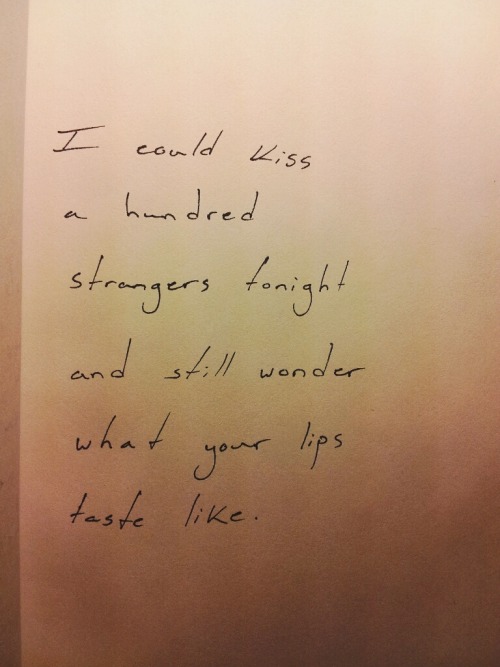 I could kiss
a hundred
strangers tonight
and still wonder
what your lips
taste like.